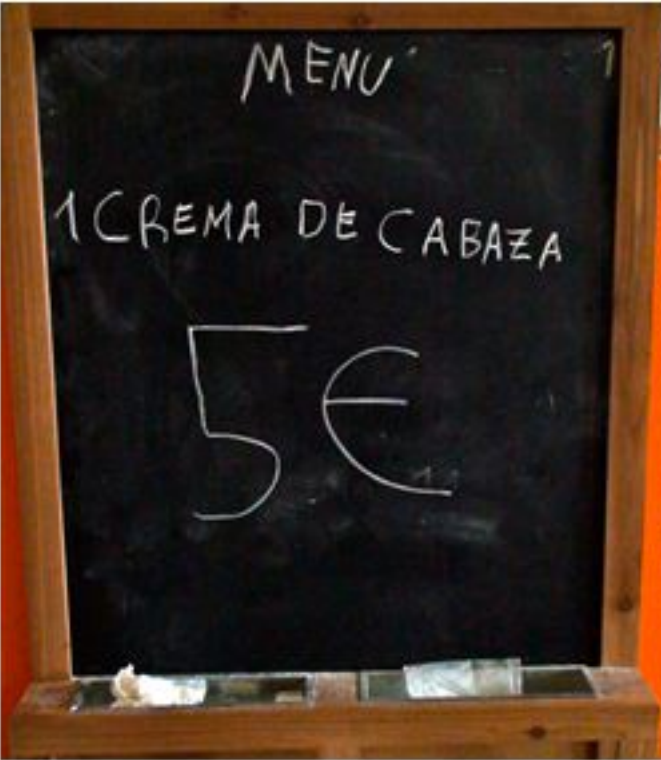 MENÚ
1
1 CREMA DE CABAZA
5€